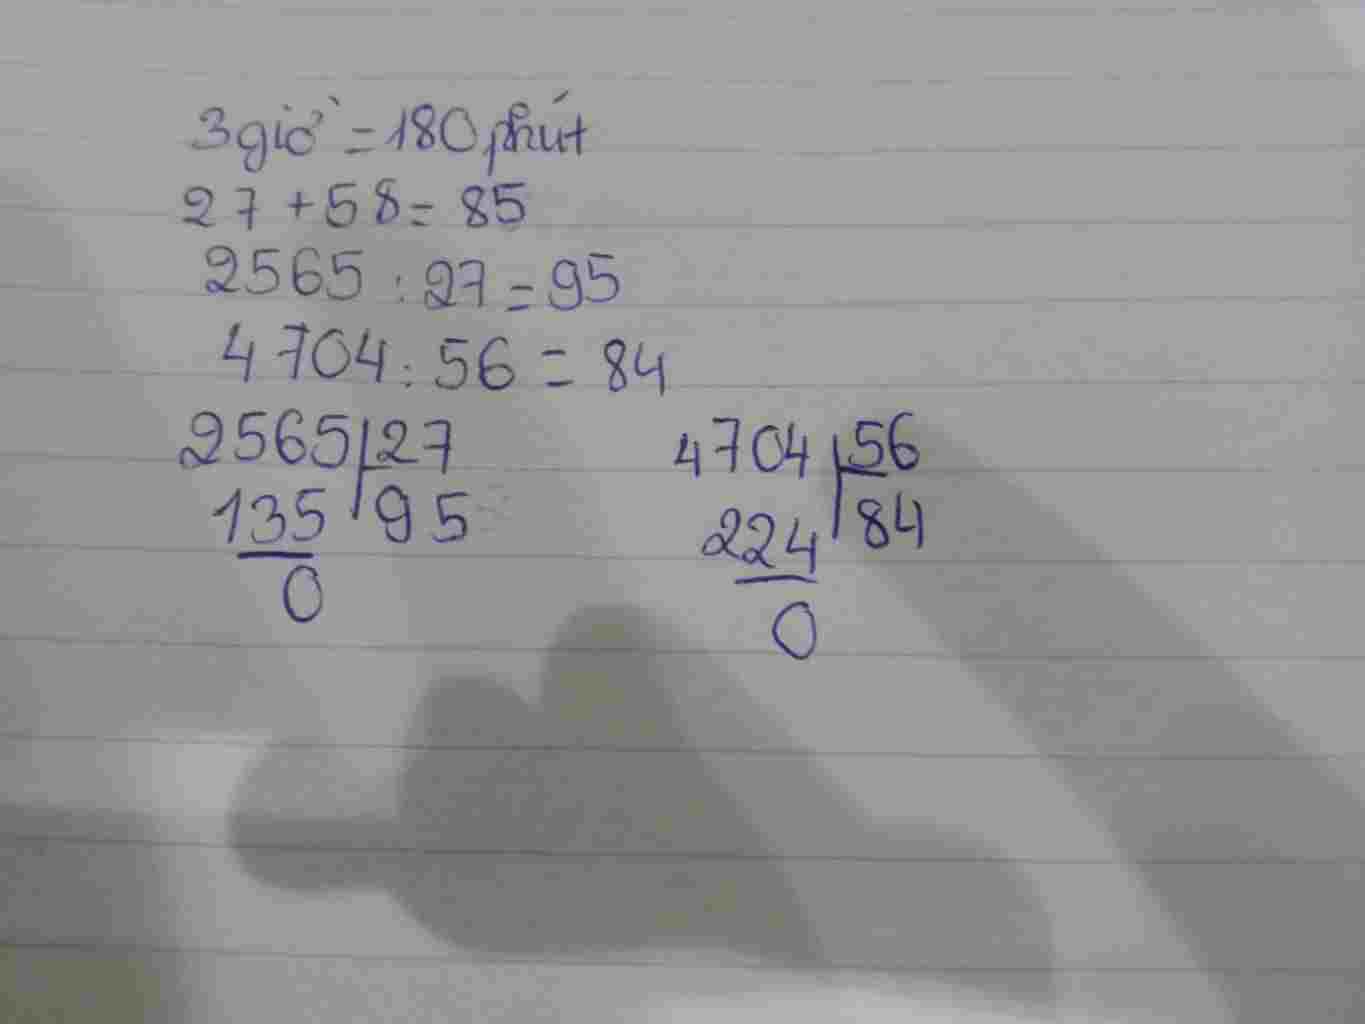 3 giờ = 180 phút
27 + 58 = 85
2565 : 27 = 95
4704 : 56 = 84
2565 27 4704 56
135 95 224 84
0 0